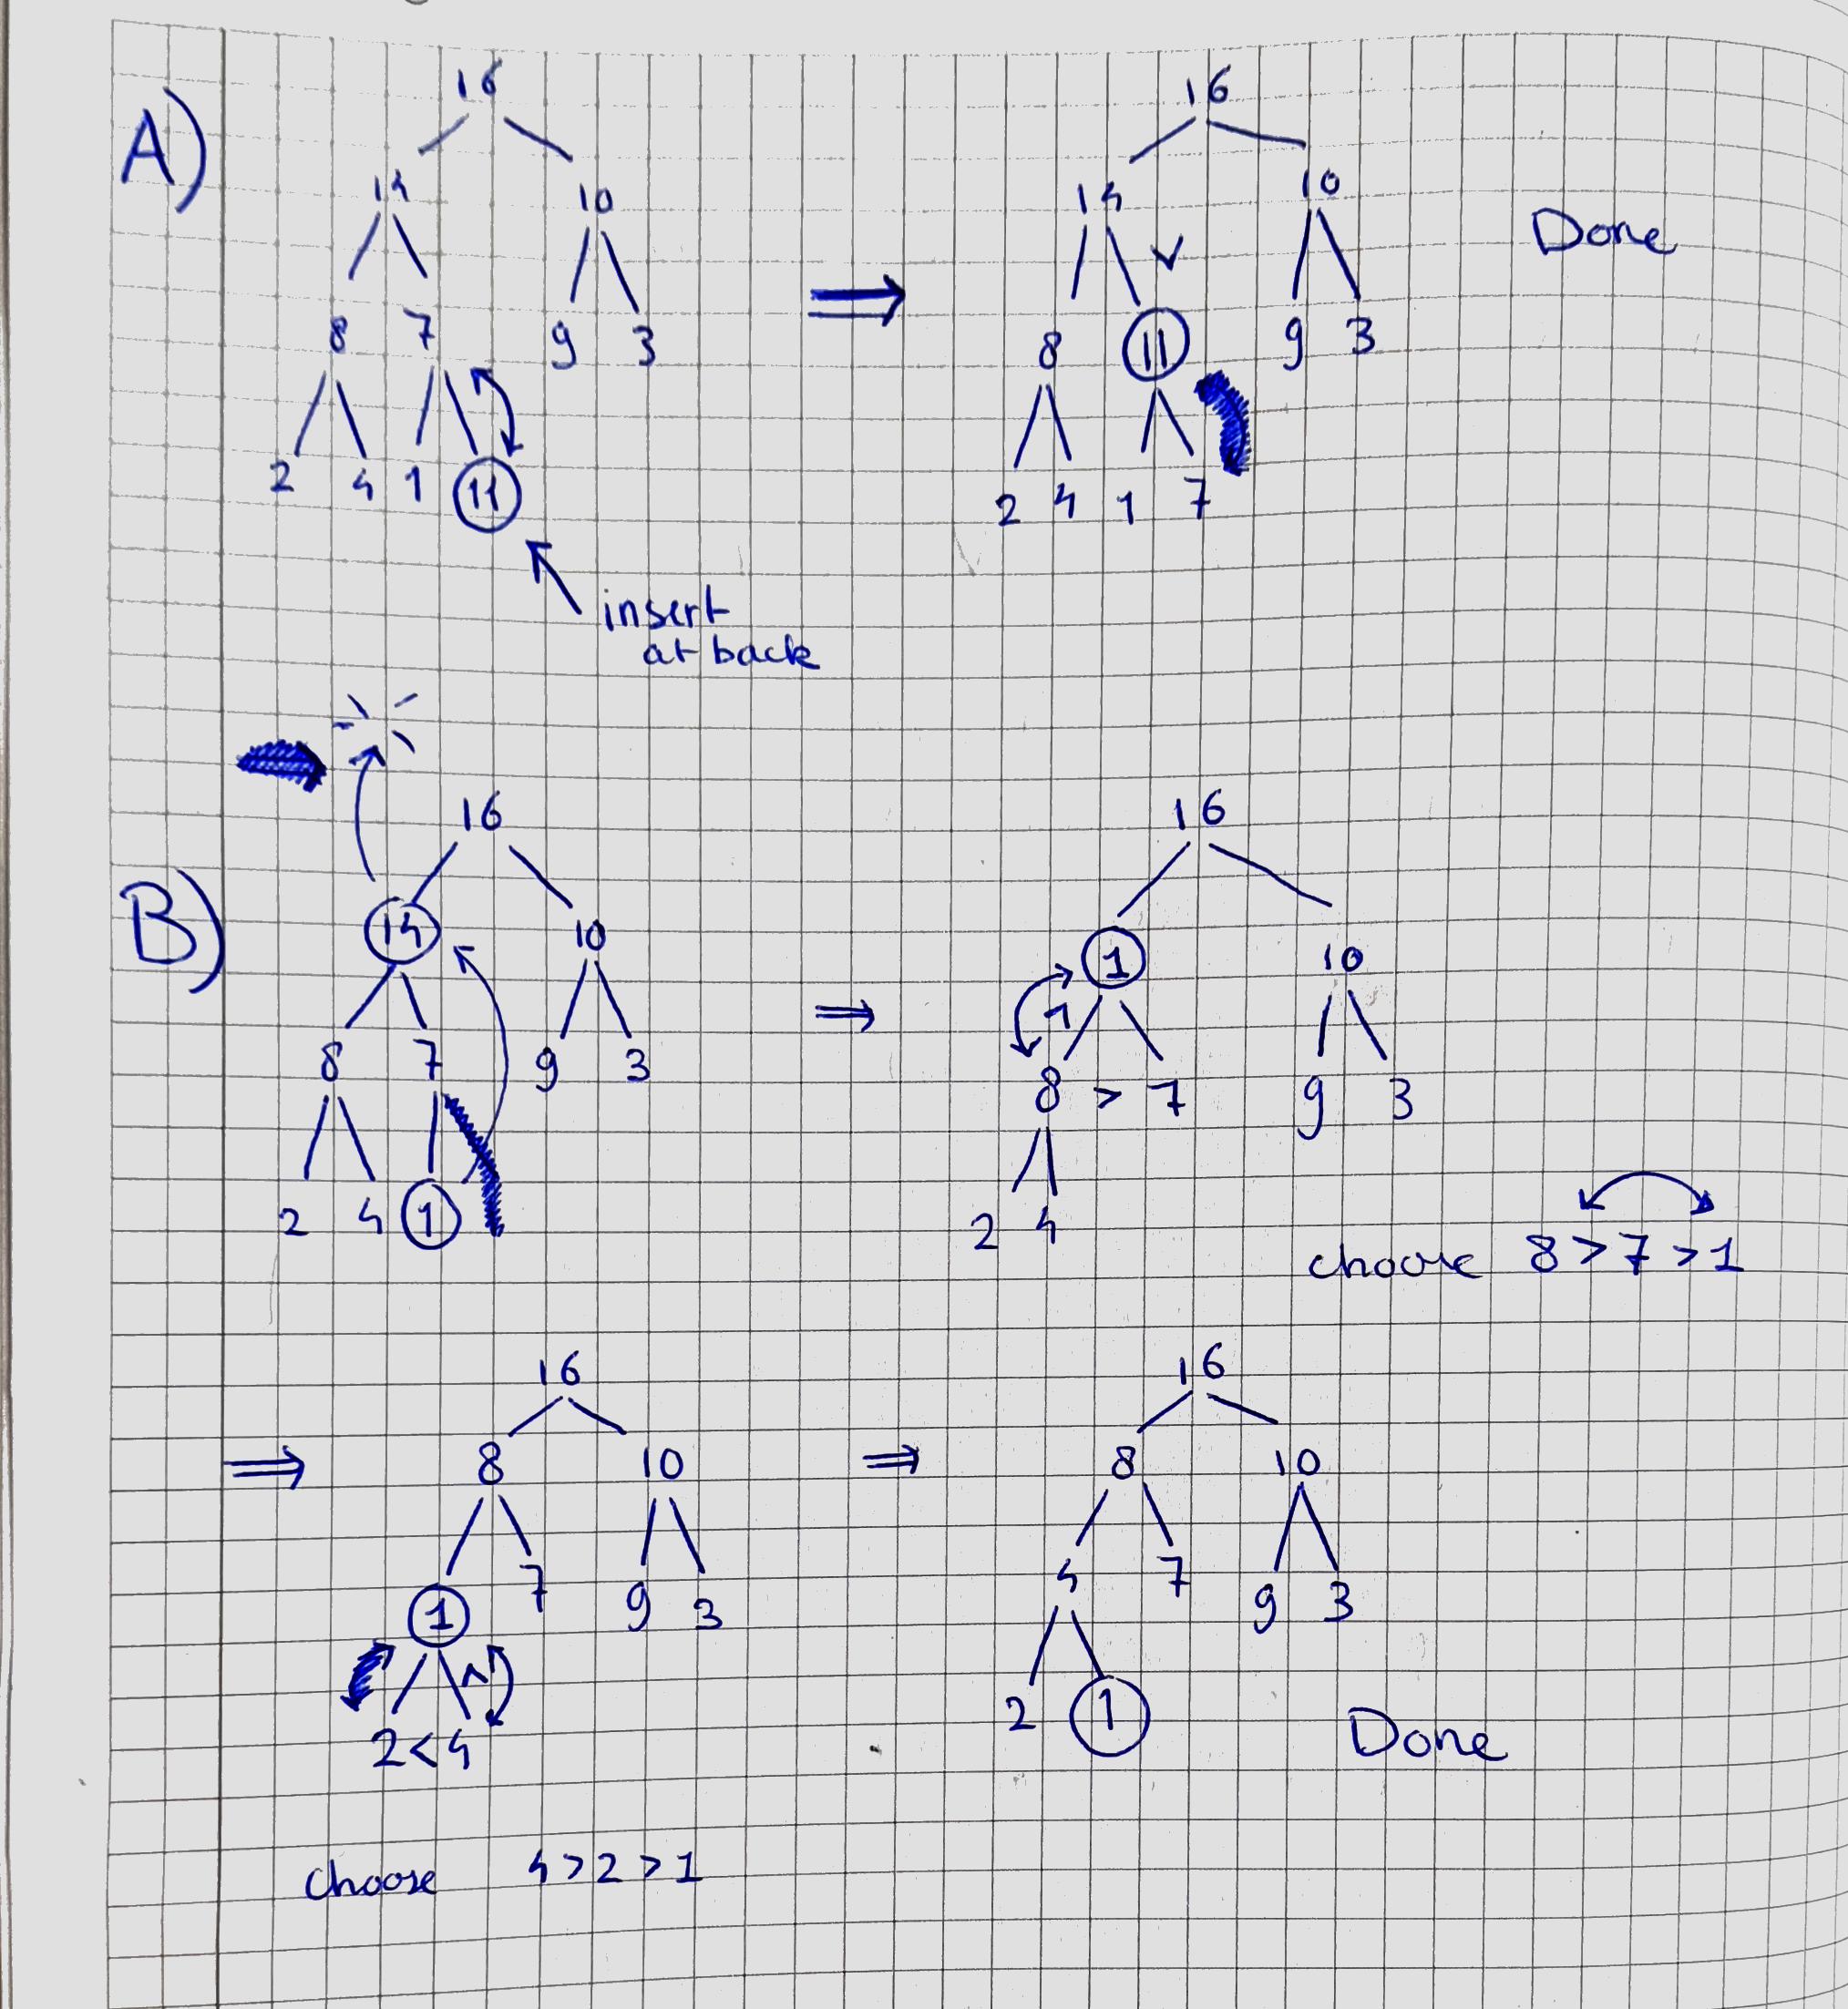 A)
16
14 10
8 7 9 3
2 4 1 11
insert
at back
16
14 10
8 11 9 3
2 4 1 7
Done
B)
16
14 10
8 7 9 3
2 4 1
16
1 10
8 > 7 9 3
2 4
choose 8 > 7 > 1
16
8 10
1 7 9 3
2 < 4
choose 4 > 2 > 1
16
8 10
4 7 9 3
2 1
Done